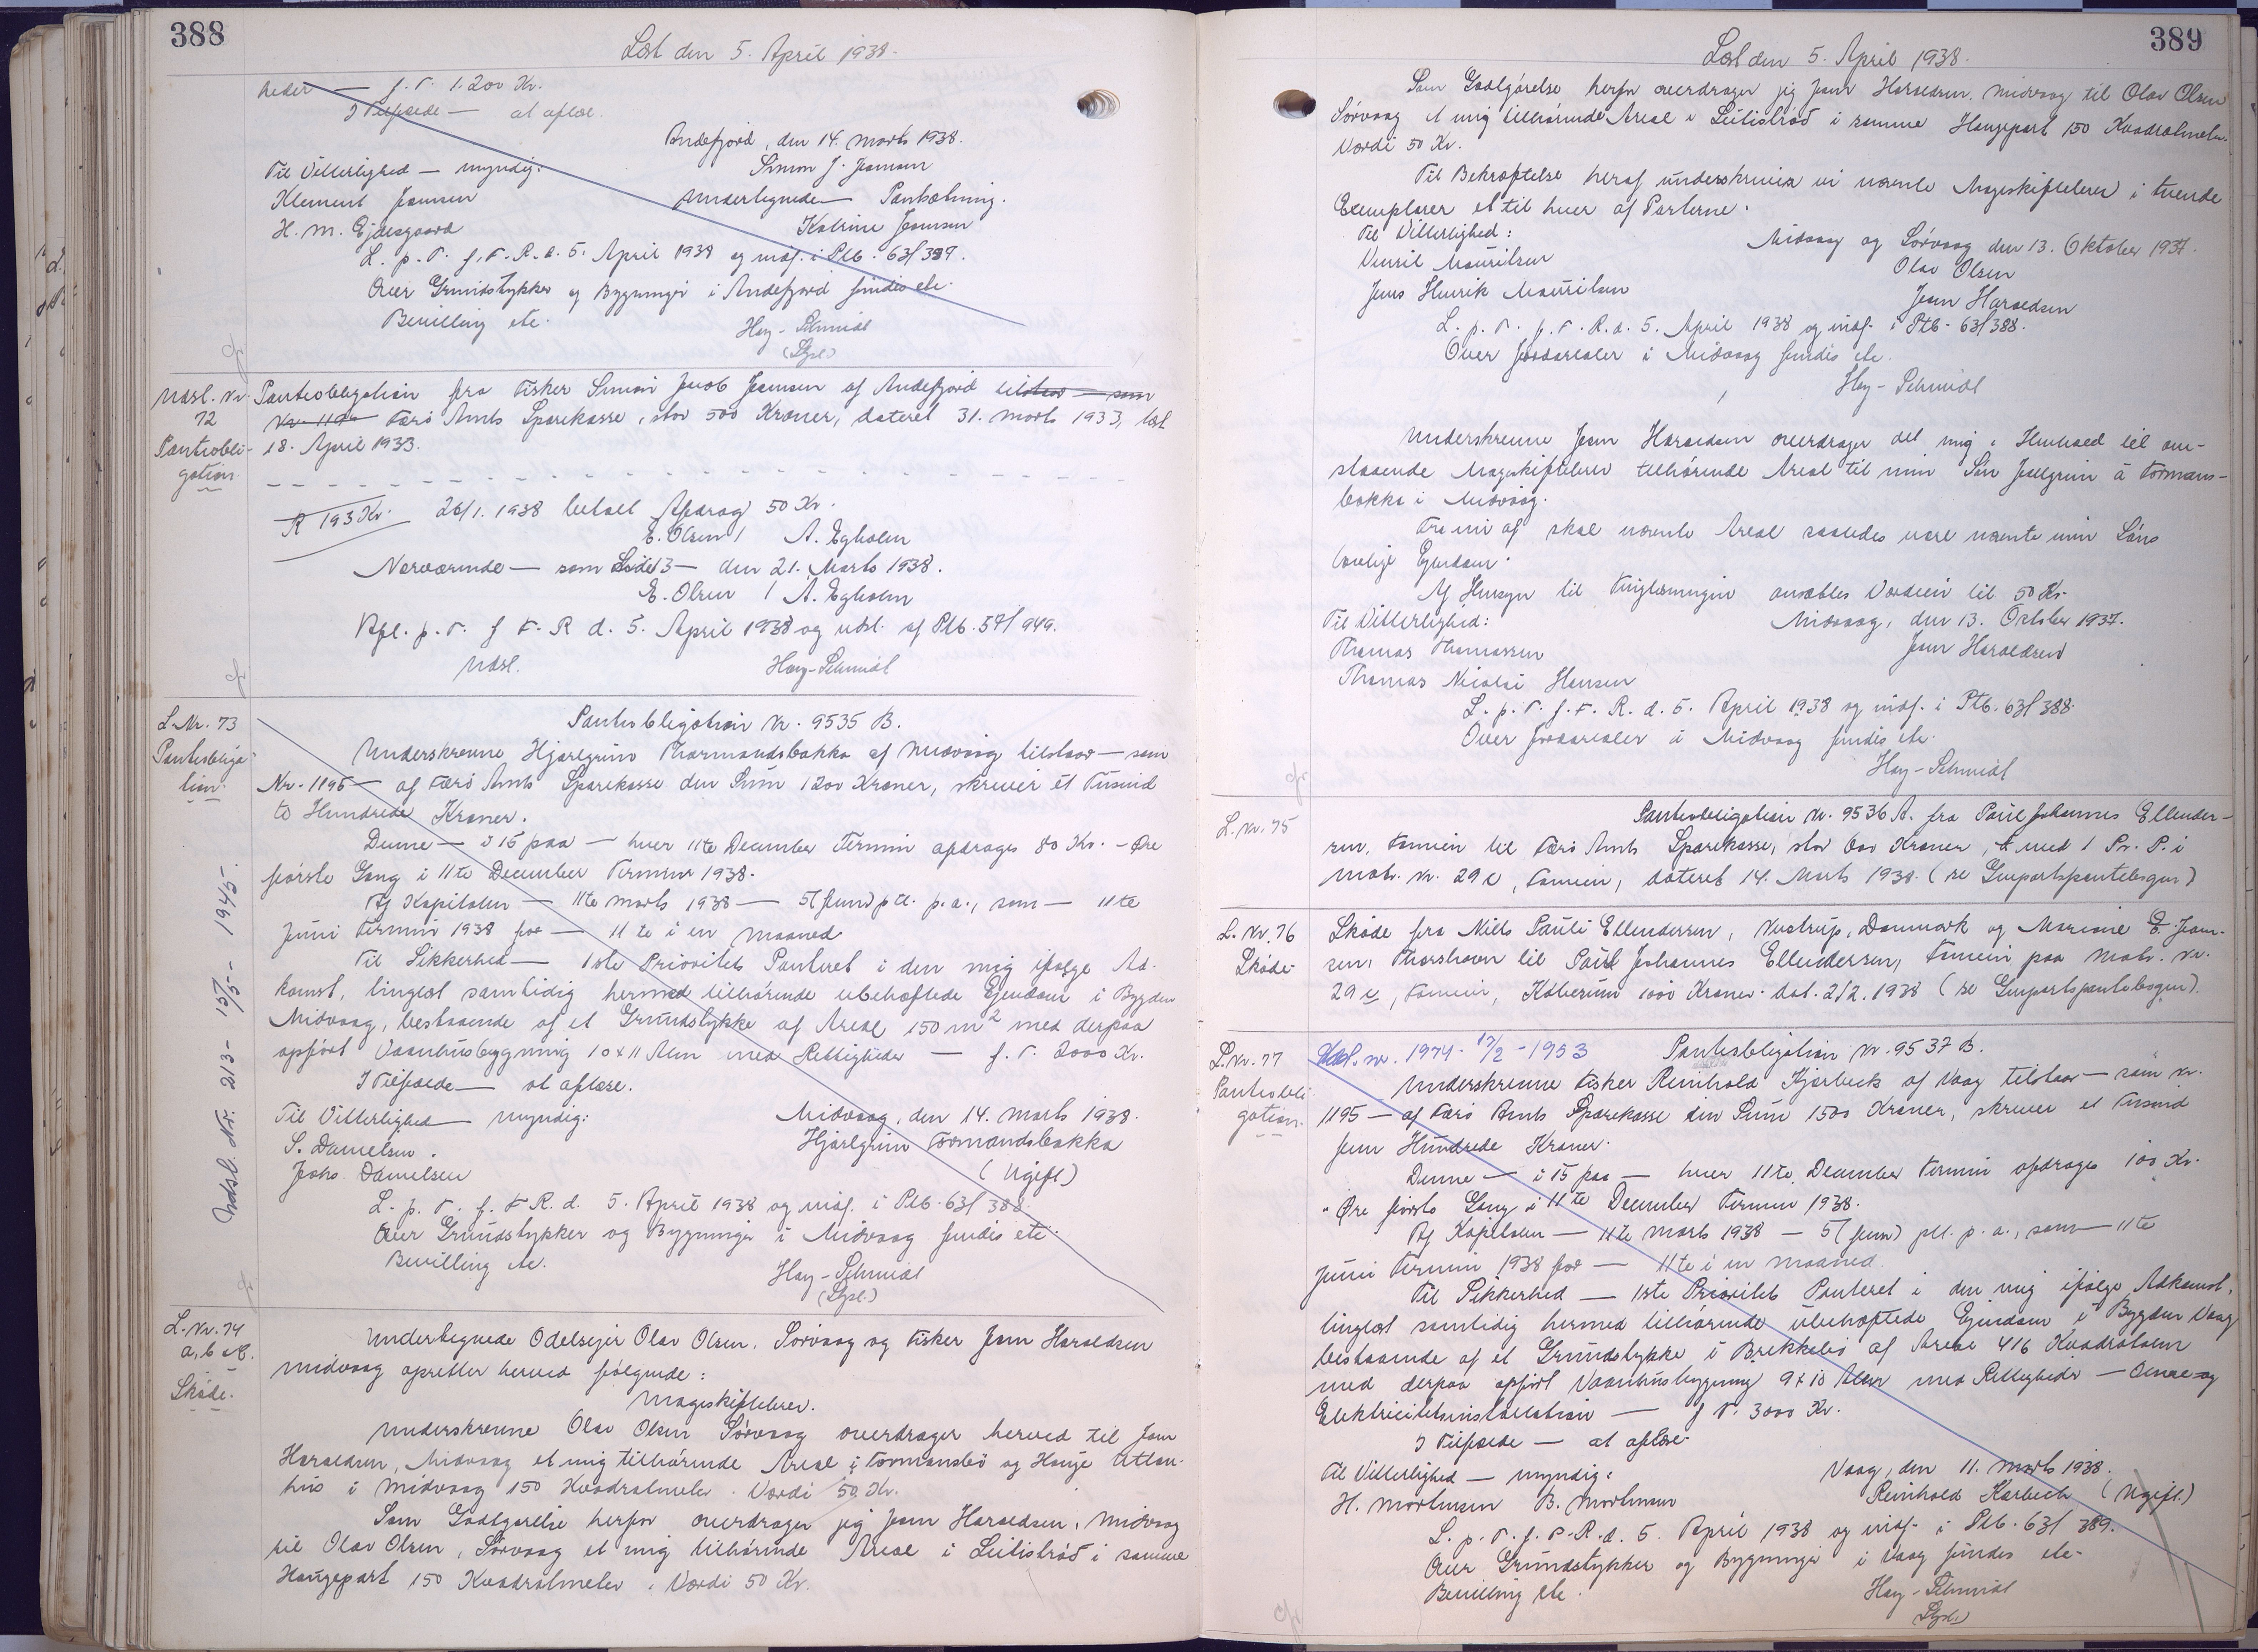 388
Læst den 5. April 1938.
heder — f. T. 1.200 Kr.
I Tilfælde — at aflæse.
Andefjord, den 14. Marts 1938.
Til Vitterlighed — myndig:
Simon J. Joensen
Klement Joensen
Undertegnede — Pantsætning.
H. M. Ejdesgaard
Katrine Joensen
L. p. T. f. F. R. d. 5. April 1938 og indf. i Ptb. 63/387.
Over Grundstykker og Bygninger i Andefjord findes etc.
Bevilling etc.
Høy-Schmidt
(Gpl.)
Udsl. Nr. 72
Pantsobligation.
Pantsobligation fra Fisker Simon Jacob Joensen af Andefjord tilstaar — som
Nr. 119 Færø Amts Sparekasse, stor 500 Kroner, dateret 31. Marts 1933, læst
18. April 1933.
R 193 Kr. 26/1. 1938 betalt Afdrag 50 Kr.
E. Olsen / A. Egholm
Nærværende — som — den 21. Marts 1938.
E. Olsen / A. Egholm
Afl. p. T. f F. R d. 5. April 1938 og udsl. af Ptb. 57/949.
Udsl. Høy-Schmidt
L. Nr. 73
Pantsobligation.
Pantsobligation Nr. 9535 B.
Underskrevne Hjørlgrim Thormandsbakka af Midvaag tilstaar — som
Nr. 1195 — af Færø Amts Sparekasse den Sum 1200 Kroner, skriver et Tusind
to Hundrede Kroner.
Denne — i 15 paa — hver 11te December Termin afdrages 80 Kr. - Øre
første Gang i 11te December Termin 1938.
Af Kapitalen — 11te Marts 1938 — 5 (fem) pCt. p. a., som — 11te
Juni Termin 1938 for — 11te i en Maaned
Til Sikkerhed — 1ste Prioritets Panteret i den mig ifølge Ad-
komst, tinglæst samtidig hermed tilhørende ubehæftede Ejendom i Bygden
Midvaag, bestaaende af et Grundstykke af Areal 150 m² med derpaa
opført Vaanhusbygning 10 x 11 Alen med Rettigheder — f. T. 2000 Kr.
I Tilfælde — at aflæse.
Til Vitterlighed — myndig:
Midvaag, den 14. Marts 1938.
S. Danielsen.
Hjørlgrim Tormandsbakka
Johs. Danielsen
(Ugift)
L. p. T. f. F. R. d. 5. April 1938 og indf. i Ptb. 63/388.
Over Grundstykker og Bygninger i Midvaag findes etc.
Bevilling etc.
Høy-Schmidt
(Gpl.)
Udsl. Nr. 213- 15/5- 1945.
L. Nr. 74
a, b
Skøde.
Undertegnede Odelsejer Olav Olsen, Sørvaag og Fisker Joen Haraldsen
Midvaag opretter herved følgende:
Mageskiftebrev.
Underskrevne Olav Olsen Sørvaag overdrager herved til Joen
Haraldsen, Midvaag et mig tilhørende Areal i Tormansbø og Hauge Uttan-
hús i Midvaag 150 Kvadratmeter. Værdi 50 Kr.
Som Godtgørelse herfor overdrager jeg Joen Haraldsen, Midvaag
til Olav Olsen, Sørvaag et mig tilhørende Areal i Leitistrøð i samme
Haugepart 150 Kvadratmeter. Værdi 50 Kr.
389
Læst den 5. April 1938.
Som Godtgørelse herfor overdrager jeg Joen Haraldsen, Midvaag til Olav Olsen
Sørvaag et mig tilhørende Areal i Leitistrøð i samme Haugepart 150 Kvadratmeter.
Værdi 50 Kr.
Til Bekræftelse heraf underskriver vi nævnte Mageskiftebrev i tvende
Exemplarer et til hver af Parterne.
Til Vitterlighed:
Midvaag og Sørvaag den 13. Oktober 1937.
Olav Olsen
Jens Henrik Mouritsen
Joen Haraldsen
L. p. T. f. F. R. d. 5. April 1938 og indf. i Ptb. 63/388.
Over Jordarealer i Midvaag findes etc.
Høy-Schmidt
Underskrevne Joen Haraldsen overdrager det mig i Henhold til om-
staaende Mageskiftebrev tilhørende Areal til min Søn Hjallgrim á Tormans-
bakka i Midvaag.
Fra nu af skal nævnte Areal saaledes være nævnte min Søns
lovlige Ejendom.
Af Hensyn til Tinglæsningen ansættes Værdien til 50 Kr.
Til Vitterlighed:
Midvaag, den 13. October 1937.
Thomas Thomassen
Joen Haraldsen
Thomas Nicolai Hansen
L. p. T. f. F. R. d. 5. April 1938 og indf. i Ptb. 63/388.
Over Jordarealer i Midvaag findes etc.
Høy-Schmidt
L. Nr. 75
Pantsobligation Nr. 9536 A. fra Poul Johannes Ellender-
sen, Famien til Færø Amts Sparekasse, stor 600 Kroner, med 1 Pr. P. i
Matr. Nr. 29 c, Famien, dateret 14. Marts 1938. (se Genpartspantebogen)
L. Nr. 76
Skøde
Skøde fra Niels Pauli Ellendersen, Vostrup, Danmark og Mariane E. Joen-
sen, Thorshavn til Poul Johannes Ellendersen, Famien paa Matr. Nr.
29 c, Famien, Købesum 1000 Kroner dat. 2/2. 1938 (se Genpartspantebogen).
L. Nr. 77
Pantsobligation.
Udsl. nr. 1974. 17/2 - 1953
Pantsobligation Nr. 9537 B.
Underskrevne Fisker Reinhold Kjærbech af Vaag tilstaar — som Nr.
1195 — af Færø Amts Sparekasse den Sum 1500 Kroner, skriver et Tusind
fem Hundrede Kroner.
Denne — i 15 paa — hver 11te December Termin afdrages 100 Kr.
" Øre første Gang i 11te December Termin 1938.
Af Kapitalen — 11te Marts 1938 — 5 (fem) pCt. p. a., som — 11te
Juni Termin 1938 for — 11te i en Maaned.
Til Sikkerhed — 1ste Prioritets Panteret i den mig ifølge Adkomst,
tinglæst samtidig hermed tilhørende ubehæftede Ejendom i Bygden Vaag
bestaaende af et Grundstykke i Brekkelið af Areal 416 Kvadratalen
med derpaa opført Vaanhusbygning 9 x 10 Alen med Rettigheder — og
Elektricitetsinstallation — f T. 3000 Kr.
I Tilfælde — at aflæse.
Til Vitterlighed — myndig:
Vaag, den 11. Marts 1938.
H. Mortensen B. Mortensen
Reinhold Kærbech (Ugift.)
L. p. T. f. F. R. d. 5. April 1938 og indf. i Ptb. 63/389.
Over Grundstykker og Bygninger i Vaag findes etc.
Bevilling etc.
Høy-Schmidt
(Gpl.)